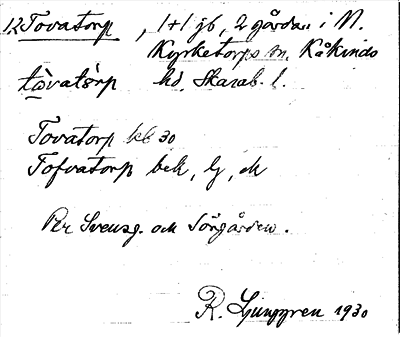 12 Tovatorp, 1+1 jb, 2 gårdar i N.
Kyrketorps sn. Kåkinds
tòvatå̀rp hd. Skarab. l.
Tovatorp kb 30
Tofvatorp bek, lg, ek
Per Svensg. och Sörgården.
R. Ljunggren 1930